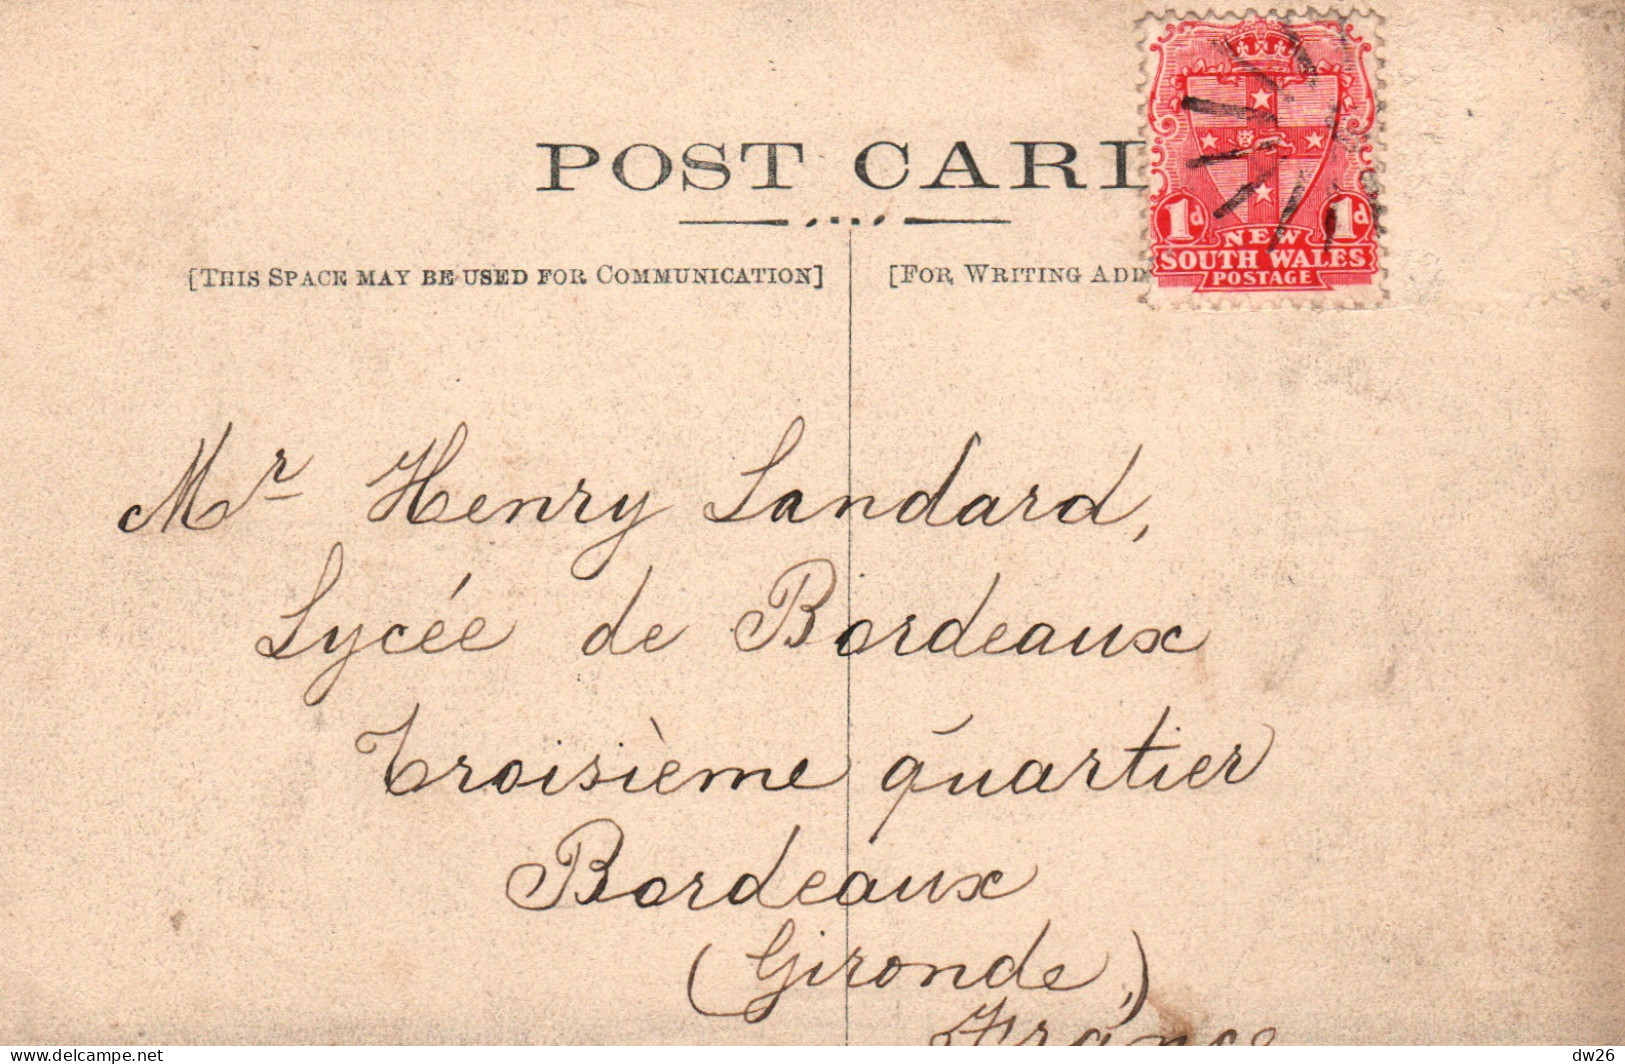 POST CAR
[THIS SPACE MAY BE USED FOR COMMUNICATION]
[FOR WRITING ADD
1d 1d
NEW
SOUTH WALES
POSTAGE
Mr Henry Landard,
Lycée de Bordeaux
Troisième quartier
Bordeaux
(Gironde,)
France
delcampe.net
dw26